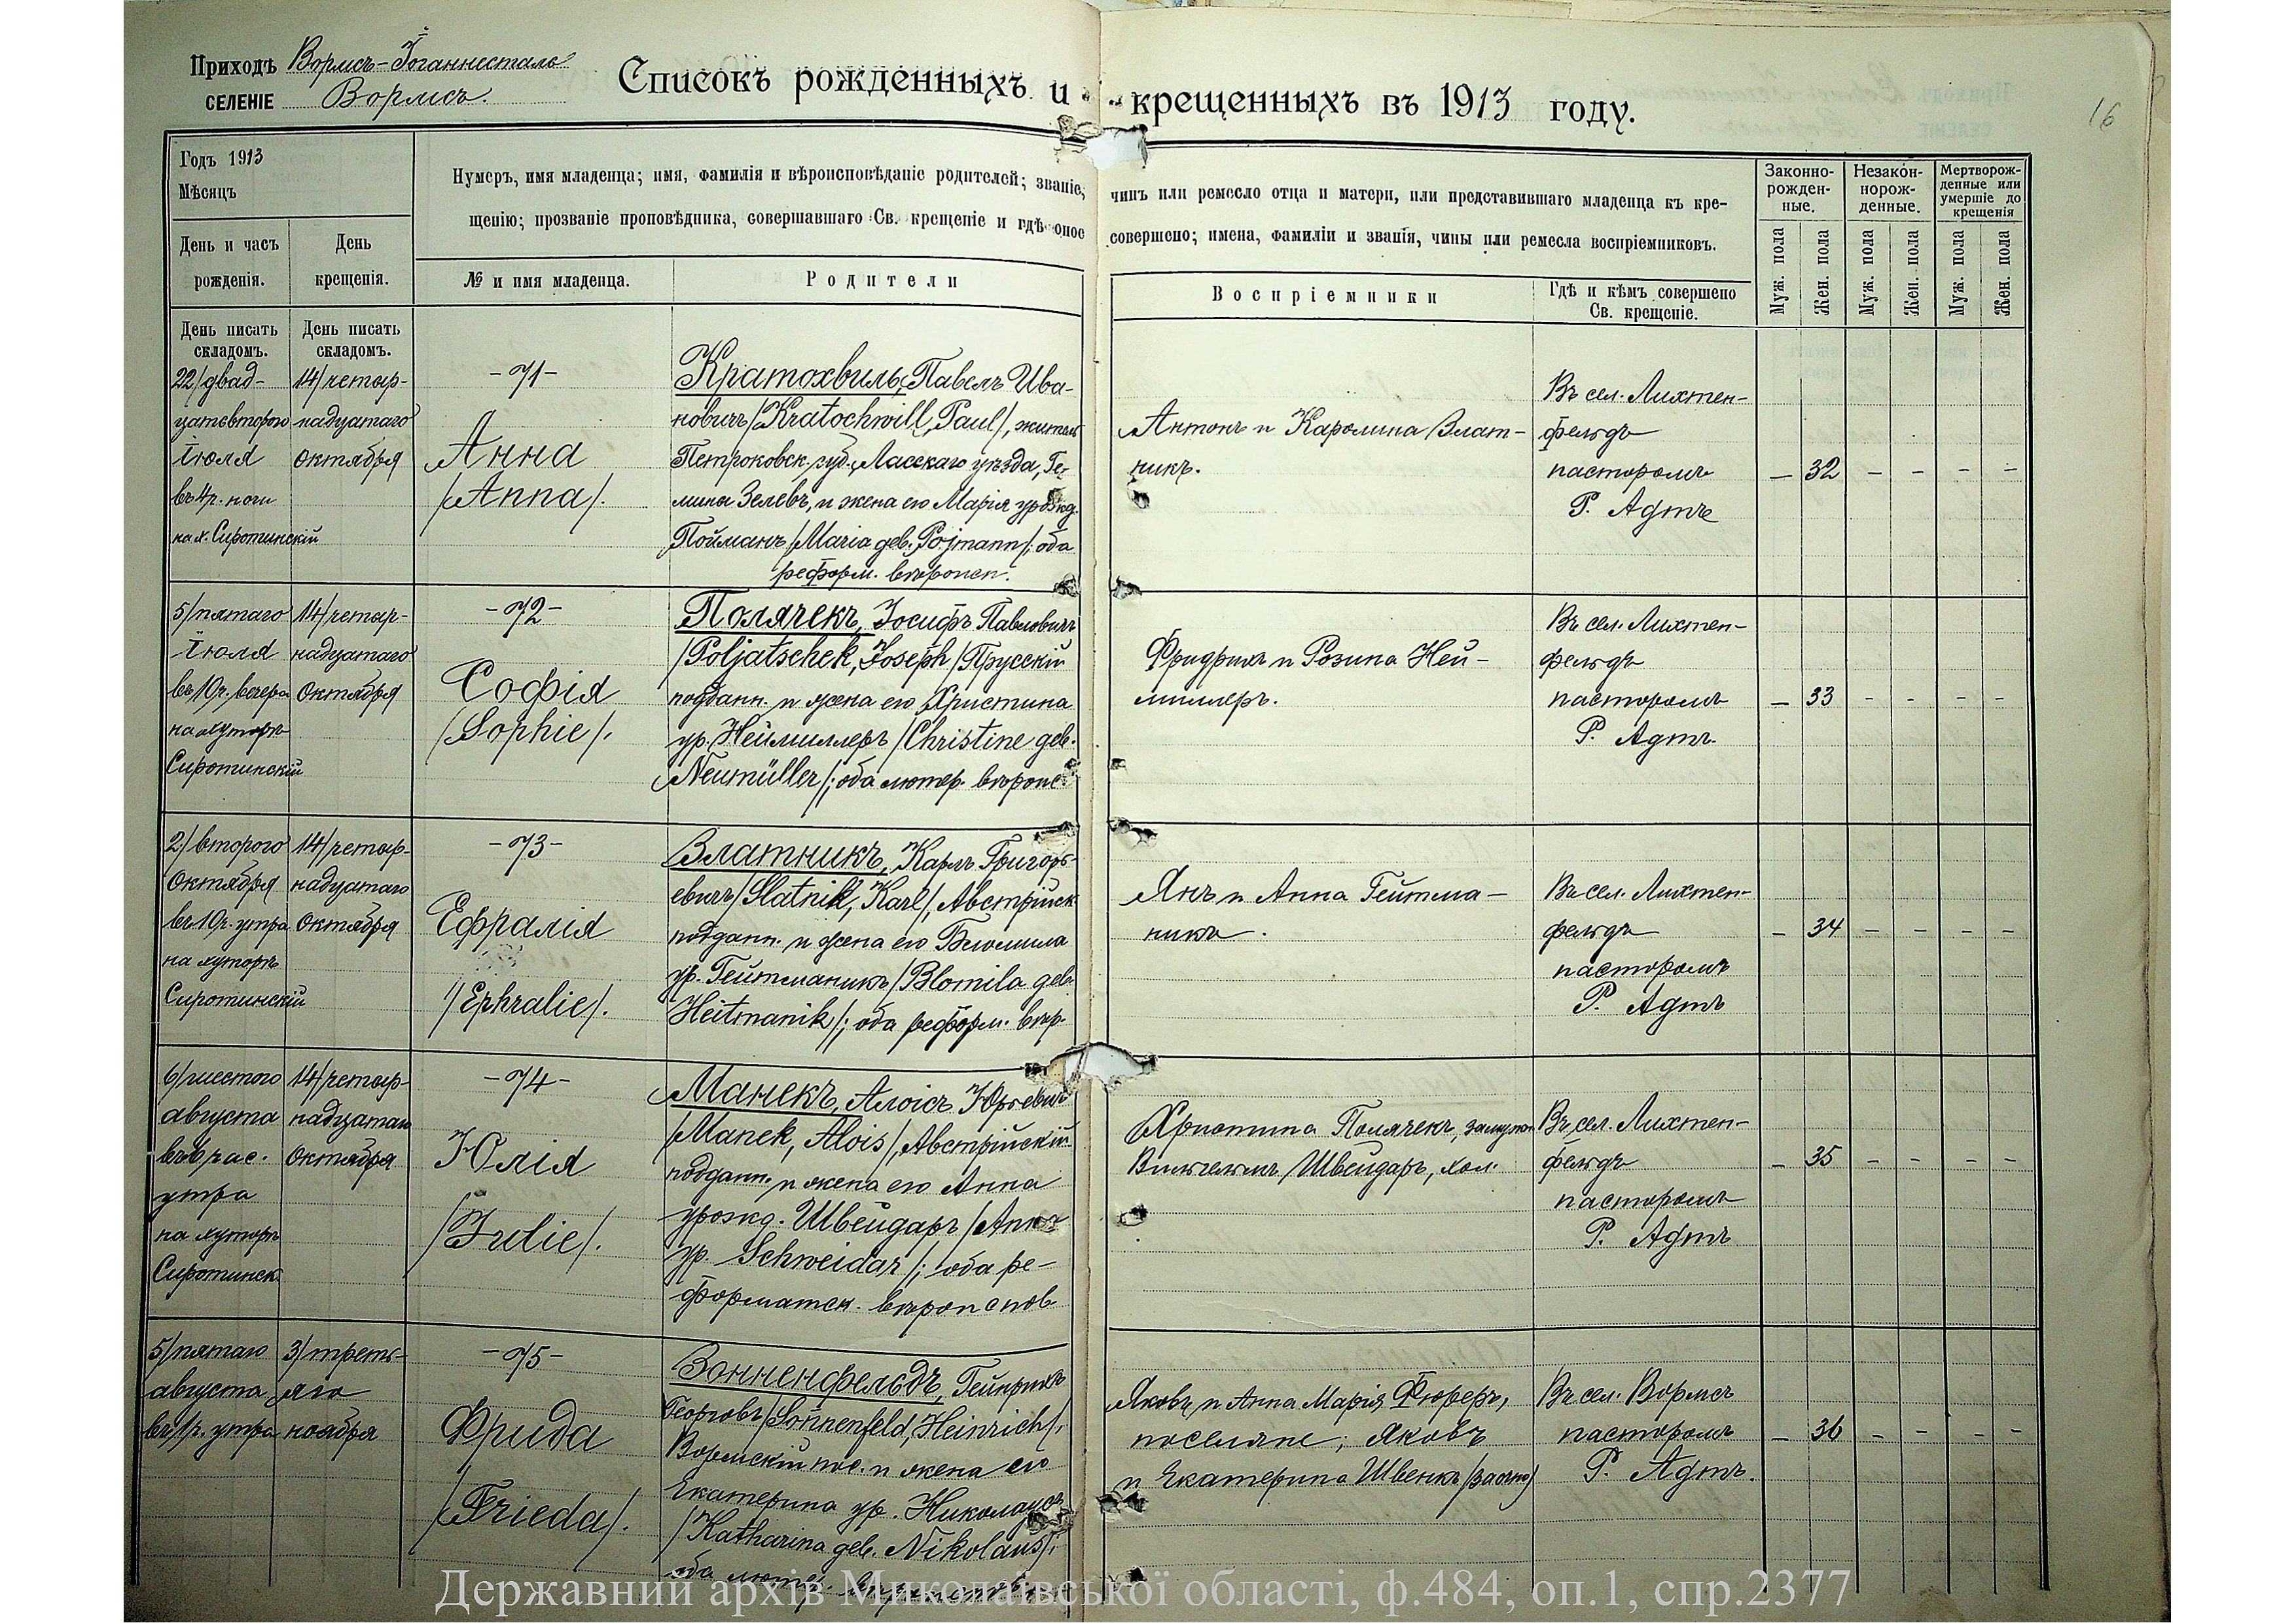 Приходъ Вормсъ-Іоганнесталь
селеніе Вормсъ.
Списокъ рожденныхъ и крещенныхъ въ 1913 году.
16
Годъ 1913
Мѣсяцъ
День и часъ
рожденія.
День
крещенія.
Нумеръ, имя младенца; имя, фамилія и вѣроисповѣданіе родителей; званіе, чинъ или ремесло отца и матери, или представившаго младенца къ кре-
щенію; прозваніе проповѣдника, совершавшаго Св. крещеніе и гдѣ оное совершено; имена, фамиліи и званія, чины или ремесла воспріемниковъ.
№ и имя младенца.
Родители
Воспріемники
Гдѣ и кѣмъ совершено
Св. крещеніе.
Законно-
рожден-
ные.
Незакон-
норож-
денные.
Мертворож-
денные или
умершіе до
крещенія
Муж. пола
Жен. пола
Муж. пола
Жен. пола
Муж. пола
Жен. пола
День писать
складомъ.
День писать
складомъ.
22/двад-
цатьвторого
Іюля
въ 4ч. ночи
на х. Сиротинскій
14/четыр-
надцатаго
октября
-71-
Анна
/Anna/.
Кратохвиль, Павелъ Ива-
новичъ /Kratochwill, Paul/, житель
Петроковск. губ. Ласскаго уѣзда, Ге-
мины Зелевъ, и жена его Марія урожд.
Пойманъ /Maria geb. Pojmann/; оба
реформ. вѣроисп.
Антонъ и Каролина Злат-
никъ.
Въ сел. Лихтен-
фельдъ
пасторомъ
Р. Адтъ
— 32 — — — —
5/пятаго
Іюля
въ 10ч. вечера
на хуторѣ
Сиротинскій
14/четыр-
надцатаго
октября
-72-
Софія
/Sophie/.
Полячекъ, Іосифъ Павловичъ
/Poljatschek, Joseph/ Прусскій
подданн. и жена его Христина
ур. Неймиллеръ /Christine geb.
Neumüller/; оба лютер. вѣроис.
Фридрихъ и Розина Ней-
миллеръ.
Въ сел. Лихтен-
фельдъ
пасторомъ
Р. Адтъ.
— 33 - - - -
2/второго
октября
въ 10ч. утра
на хуторѣ
Сиротинскій
14/четыр-
надцатаго
октября
-73-
Ефралія
/Ephralie/.
Златникъ, Карлъ Григорь-
евичъ /Slatnik, Karl/, Австрійск
подданн. и жена его
ур. Гейтманикъ /Blomila geb.
Heitmanik/; оба реформ. вѣр.
Янъ и Анна Гейтма-
никъ.
Въ сел. Лихтен-
фельдъ
пасторомъ
Р. Адтъ
— 34 — — — —
6/шестого
августа
час.
утра
на хуторѣ
Сиротинск.
14/четыр-
надцатаго
октября
-74-
Юлія
/Julie/.
Манекъ, Алоісъ Юрьевичъ
/Manek, Alois/, Австрійскій
подданн. и жена его Анна
урожд. Швейдаръ /Анна
ур. Schweidar/; оба ре-
форматск. вѣроиспов
Христина Полячекъ, замужн.
Вильгельмъ Швейдаръ, хол.
Въ сел. Лихтен-
фельдъ
пасторомъ
Р. Адтъ
— 35 — — — —
5/пятаго
августа
въ 1ч. утра
3/треть-
яго
ноября
-75-
Фрида
/Frieda/.
Зонненфельдъ, Гейнрихъ
Георговъ /Sonnenfeld, Heinrich/,
Вормскій пос. и жена его
Екатерина ур. Николаусъ
/Katharina geb. Nikolaus/;
оба лютер.
Яковъ и Анна Марія Фюреръ,
поселяне; Яковъ
и Екатерина Швенкъ /заочно/
Въ сел. Вормсъ
пасторомъ
Р. Адтъ.
— 36 — — — —
Державний архів Миколаївської області, ф.484, оп.1, спр.2377